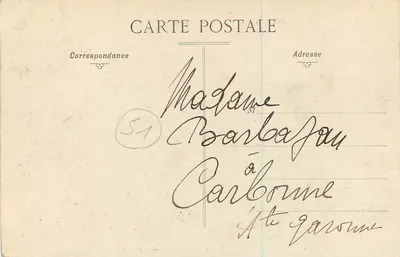 CARTE POSTALE
Correspondance
Adresse
Madame
51
Barbazan
à
Carbonne
Hte garonne